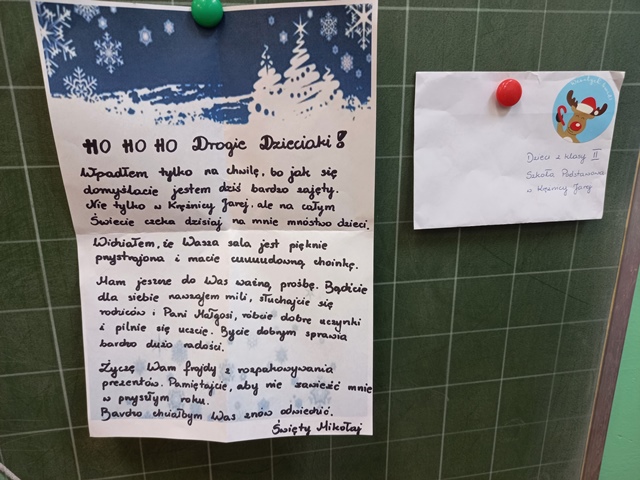 HO HO HO Drogie Dzieciaki!
Wpadłem tylko na chwilę, bo jak się
domyślacie jestem dziś bardzo zajęty.
Nie tylko w Krężnicy Jarej, ale na całym
Świecie czeka dzisiaj na mnie mnóstwo dzieci.
Widziałem, że Wasza sala jest pięknie
przystrojona i macie cuuuudowną choinkę.
Mam jeszcze do Was ważną prośbę. Bądźcie
dla siebie nawzajem mili, słuchajcie się
rodziców i Pani Małgosi, róbcie dobre uczynki
i pilnie się uczcie. Bycie dobrym sprawia
bardzo dużo radości.
Życzę Wam frajdy z rozpakowywania
prezentów. Pamiętajcie, aby nie zawieść mnie
w przyszłym roku.
Bardzo chciałbym Was znów odwiedzić.
Święty Mikołaj
Dzieci z klasy II
Szkoła Podstawowa
w Krężnicy Jarej